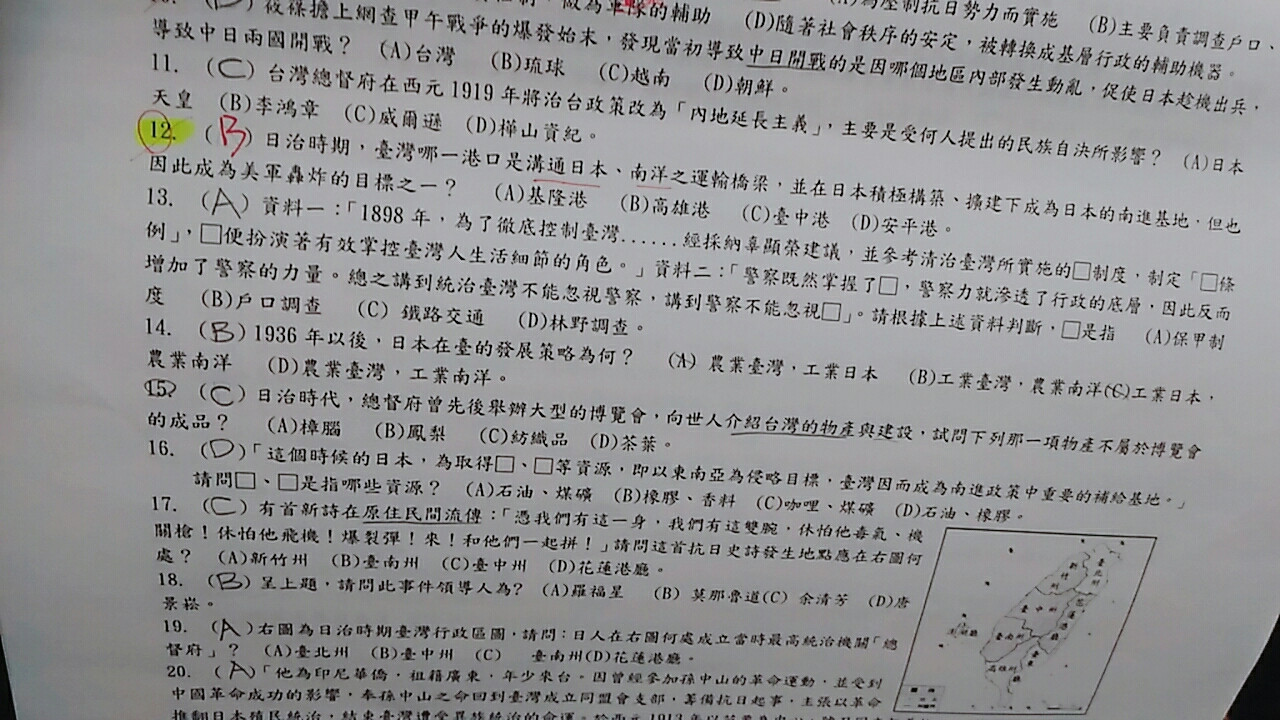 (D)筱筱擔上網查甲午戰爭的爆發始末，發現當初導致中日開戰的是因哪個地區內部發生動亂，促使日本趁機出兵，
做為軍隊的輔助 (D)隨著社會秩序的安定，被轉換成基層行政的輔助機器。
為壓制抗日勢力而實施 (B)主要負責調查戶口、
導致中日兩國開戰？ (A)台灣 (B)琉球 (C)越南 (D)朝鮮。
11. (C) 台灣總督府在西元1919年將治台政策改為「內地延長主義」，主要是受何人提出的民族自決所影響？ (A)日本
天皇 (B)李鴻章 (C)威爾遜 (D)樺山資紀。
12. (B) 日治時期，臺灣哪一港口是溝通日本、南洋之運輸橋梁，並在日本積極構築、擴建下成為日本的南進基地，但也
因此成為美軍轟炸的目標之一？ (A)基隆港 (B)高雄港 (C)臺中港 (D)安平港。
13. (A) 資料一：「1898年，為了徹底控制臺灣......經採納辜顯榮建議，並參考清治臺灣所實施的□制度，制定「□條
例」，□便扮演著有效掌控臺灣人生活細節的角色。」資料二：「警察既然掌握了□，警察力就滲透了行政的底層，因此反而
增加了警察的力量。總之講到統治臺灣不能忽視警察，講到警察不能忽視□」。請根據上述資料判斷，□是指 (A)保甲制
度 (B)戶口調查 (C) 鐵路交通 (D)林野調查。
14. (B) 1936年以後，日本在臺的發展策略為何？ (A) 農業臺灣，工業日本 (B)工業臺灣，農業南洋(C)工業日本，
農業南洋 (D)農業臺灣，工業南洋。
15. (C) 日治時代，總督府曾先後舉辦大型的博覽會，向世人介紹台灣的物產與建設，試問下列那一項物產不屬於博覽會
的成品？ (A)樟腦 (B)鳳梨 (C)紡織品 (D)茶葉。
16. (D)「這個時候的日本，為取得□、□等資源，即以東南亞為侵略目標，臺灣因而成為南進政策中重要的補給基地。」
請問□、□是指哪些資源？ (A)石油、煤礦 (B)橡膠、香料 (C)咖哩、煤礦 (D)石油、橡膠。
17. (C) 有首新詩在原住民間流傳：「憑我們有這一身，我們有這雙腕，休怕他毒氣、機
關槍！休怕他飛機！爆裂彈！來！和他們一起拼！」請問這首抗日史詩發生地點應在右圖何
處？ (A)新竹州 (B)臺南州 (C)臺中州 (D)花蓮港廳。
18. (B) 呈上題，請問此事件領導人為? (A)羅福星 (B) 莫那魯道(C) 余清芳 (D)唐
景崧。
19. (A)右圖為日治時期臺灣行政區圖，請問：日人在右圖何處成立當時最高統治機關「總
督府」？ (A)臺北州 (B)臺中州 (C) 臺南州(D)花蓮港廳。
20. (A)「他為印尼華僑，祖籍廣東，年少來台。因曾經參加孫中山的革命運動，並受到
中國革命成功的影響，奉孫中山之命回到臺灣成立同盟會支部，籌備抗日起事，主張以革命
推翻日本殖民統治，結束臺灣遭受異族統治的命運。
臺北州
新竹州
臺中州
花蓮港廳
澎湖廳
臺南州
高雄州